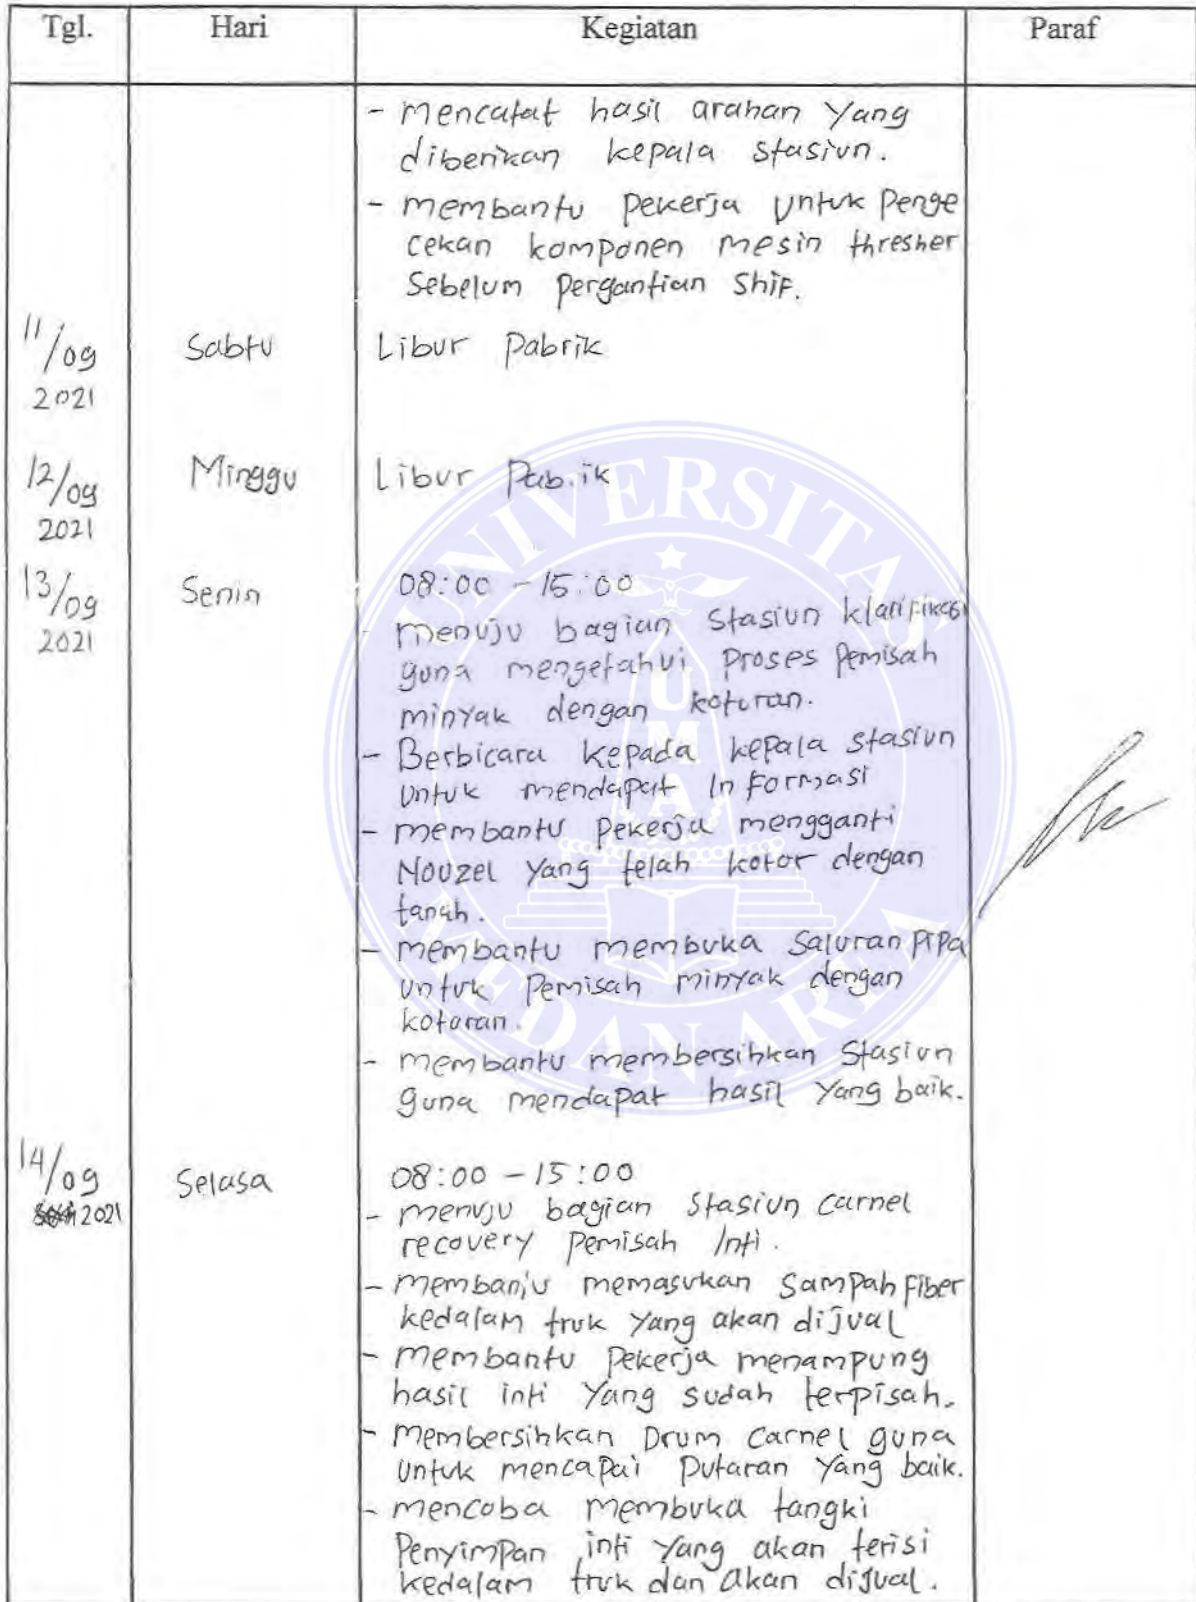 Tgl. Hari Kegiatan Paraf
- mencatat hasil arahan yang
diberikan kepala stasiun.
- membantu pekerja untuk penge
cekan komponen mesin thresher
Sebelum pergantian shif.
11/09 Sabtu Libur Pabrik
2021
12/09 Minggu Libur Pab.ik
2021
13/09 Senin 08:00 - 15:00
2021
- menuju bagian stasiun klarifikasi
guna mengetahui proses pemisah
minyak dengan kotoran.
- Berbicara kepada kepala stasiun
untuk mendapat informasi
- membantu pekerja mengganti
Nouzel yang telah kotor dengan
tanah.
- membantu membuka saluran pipa
untuk pemisah minyak dengan
kotoran.
- membantu membersihkan stasiun
guna mendapat hasil yang baik.
14/09 Selasa 08:00 - 15:00
2021
- menuju bagian stasiun carnel
recovery pemisah inti.
- membantu memasukan sampah fiber
kedalam truk yang akan dijual
- membantu pekerja menampung
hasil inti yang sudah terpisah.
- membersihkan Drum carnel guna
untuk mencapai putaran yang baik.
- mencoba membuka tangki
penyimpan inti yang akan terisi
kedalam truk dan akan dijual.
UNIVERSITAS
UMA
MEDAN AREA